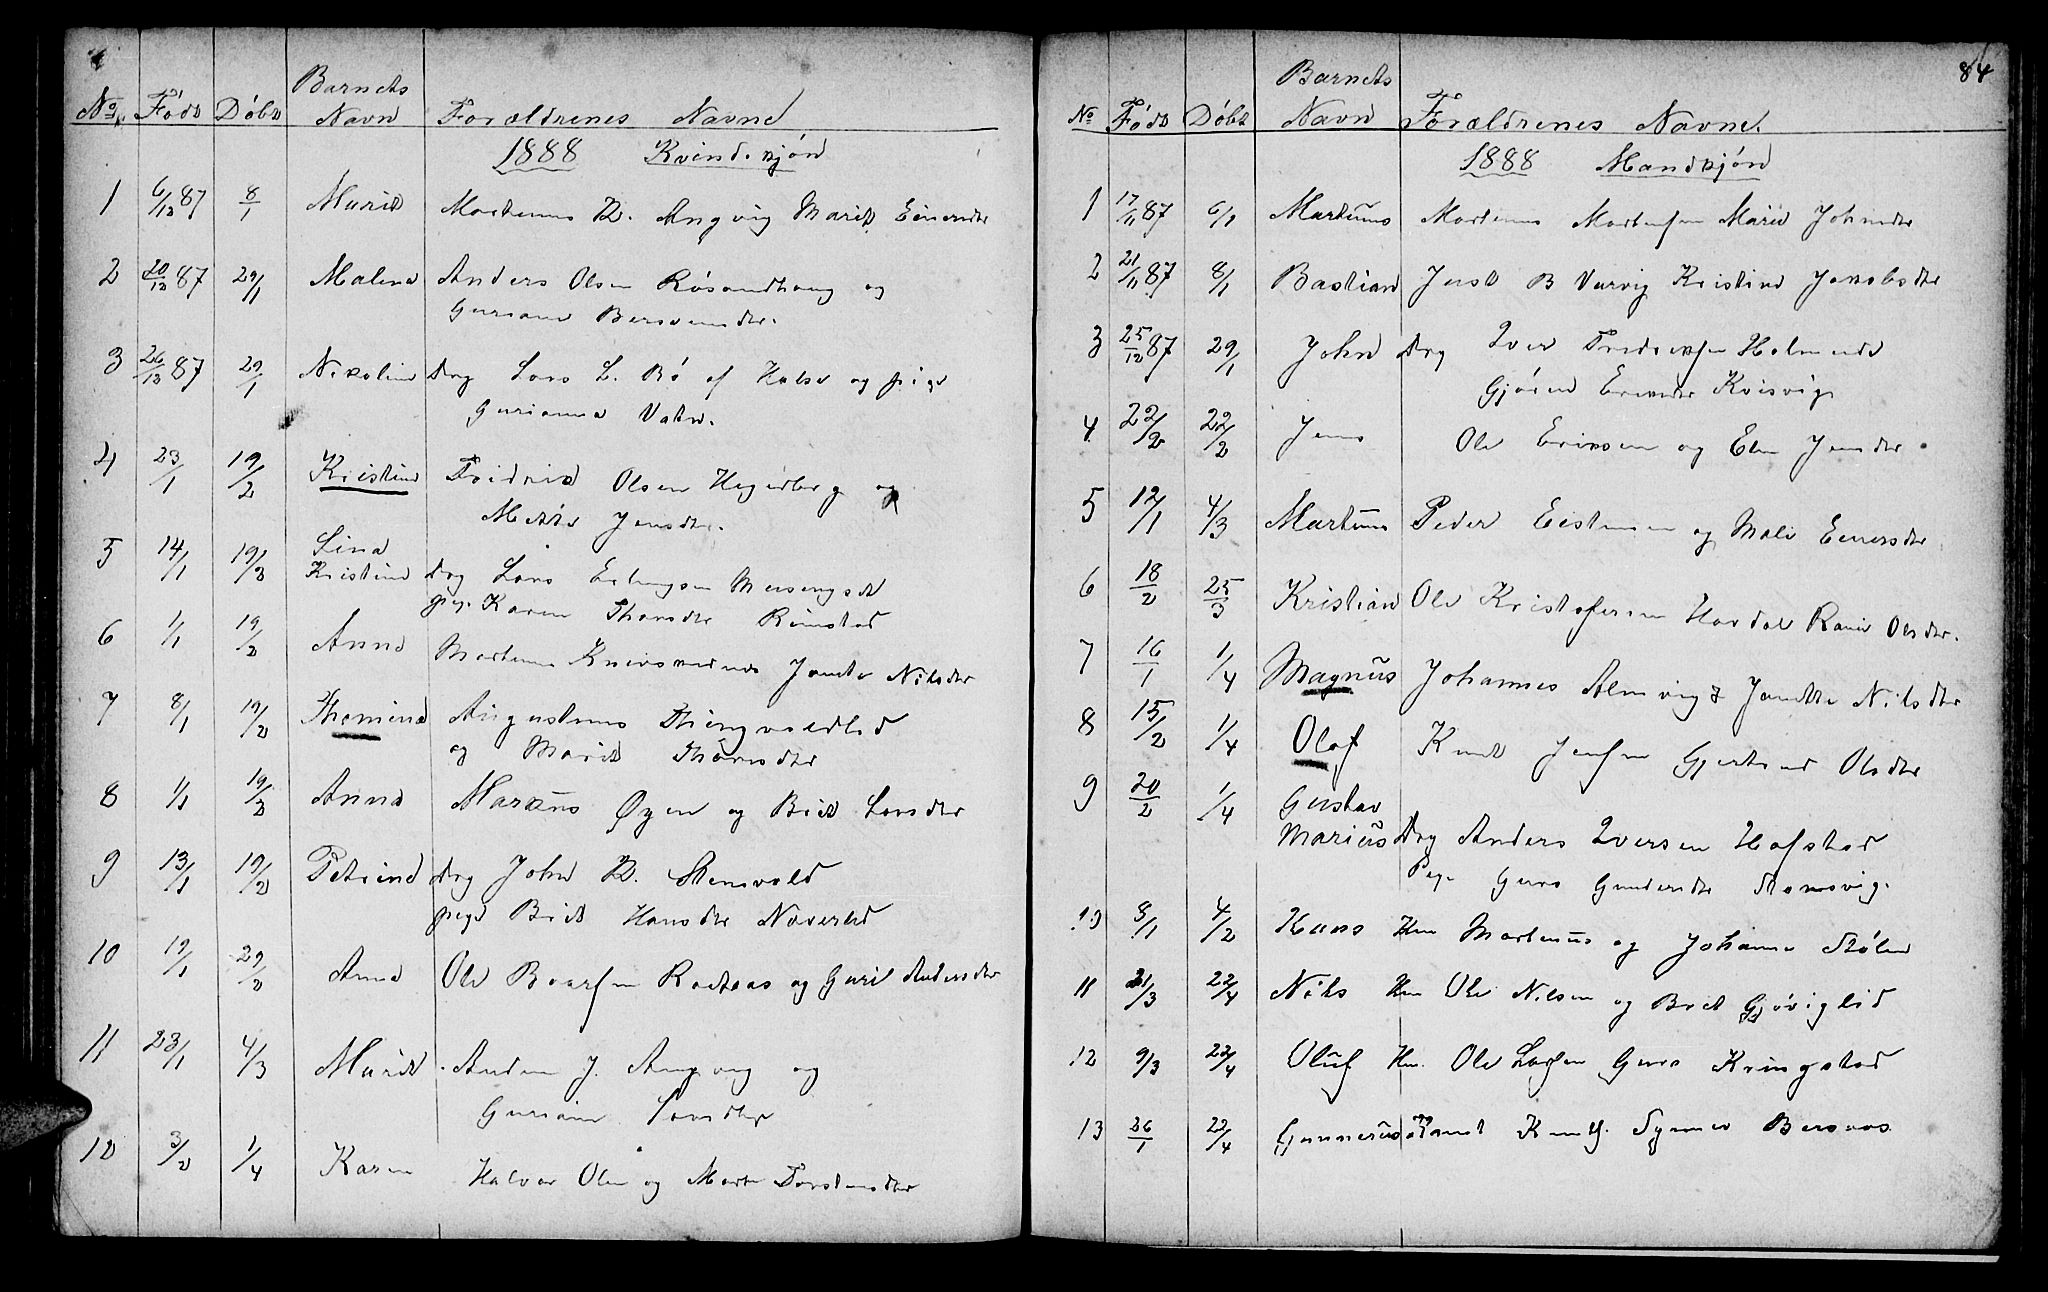 No. Født Døbt Barnets Navn Forældrenes Navne
1888 Kvindkjøn
1 6/12 87 8/1 Marit Martenus K. Angvig Marit Einersdtr
2 20/12 87 29/1 Malene Anders Olsen Røsandhaug og
Guriane Bersvendtr.
3 26/12 87 29/1 Nikoline Drg Lars L. Bø af Halse og pige
Gurianna Vatn.
4 23/1 19/2 Kristine Fridrik Olsen Hegerberg og
Mette Jensdtr.
5 14/1 19/2 Lina
Kristine Drg Lars Erlingsen Meisingset
pige Karen Thorsdtr Rimstad
6 1/1 19/2 Anne Martenus Jonete Nilsdtr
7 8/1 19/2 Themine Augustinus Thingvoldlid
og Marit
8 1/1 19/2 Anne Markus Øyen og Brit Larsdtr
9 13/1 19/2 Petrine Drg John K. Stensvold
pige Brit Hansdtr Naverlid
10 19/1 29/2 Anne Ole Baarsen Rodaas og Guri Andersdtr
11 23/1 4/3 Marit Anders J. Angvig og
Guriane Larsdtr
12 3/2 1/4 Karen Halvor Olsen og Marte Torstensdtr
84
No Født Døbt Barnets Navn Forældrenes Navne.
1888 Mandkjøn
1 17/11 87 6/1 Martinus Martinus Mortensen Marie Johnsdtr
2 21/11 87 8/1 Bastian Just B Vaavig Kristine Jakobsdtr
3 25/12 87 29/1 John Drg Iver Fredriksen Holmeide
Gjøren Eriksdtr Kvisvig
4 22/2 22/2 Jens Ole Eriksen og Elen Jensdtr
5 12/1 4/3 Martinus Peder Eistensen og Mali Einersdtr
6 18/2 25/3 Kristian Ole Kristofersen Hardal Olsdtr.
7 16/1 1/4 Magnus Johannes Almvig & Jonette Nilsdtr
8 15/2 1/4 Olaf Knut Jensen Gjertrud Olsdtr
9 20/2 1/4 Gustav
Marius Drg Anders Iversen Hofstad
Pige Guro Gundersdtr Stomsvig.
10 8/1 4/2 Hans Hm Martenus og Johanna Stølen
11 21/3 22/4 Nils Hm Ole Nilsen og Brit Gjøviglid
12 9/3 22/4 Oluf Hm. Ole Larsen Guro Kringstad
13 26/1 22/4 Gunnerus Synnev Bersaas